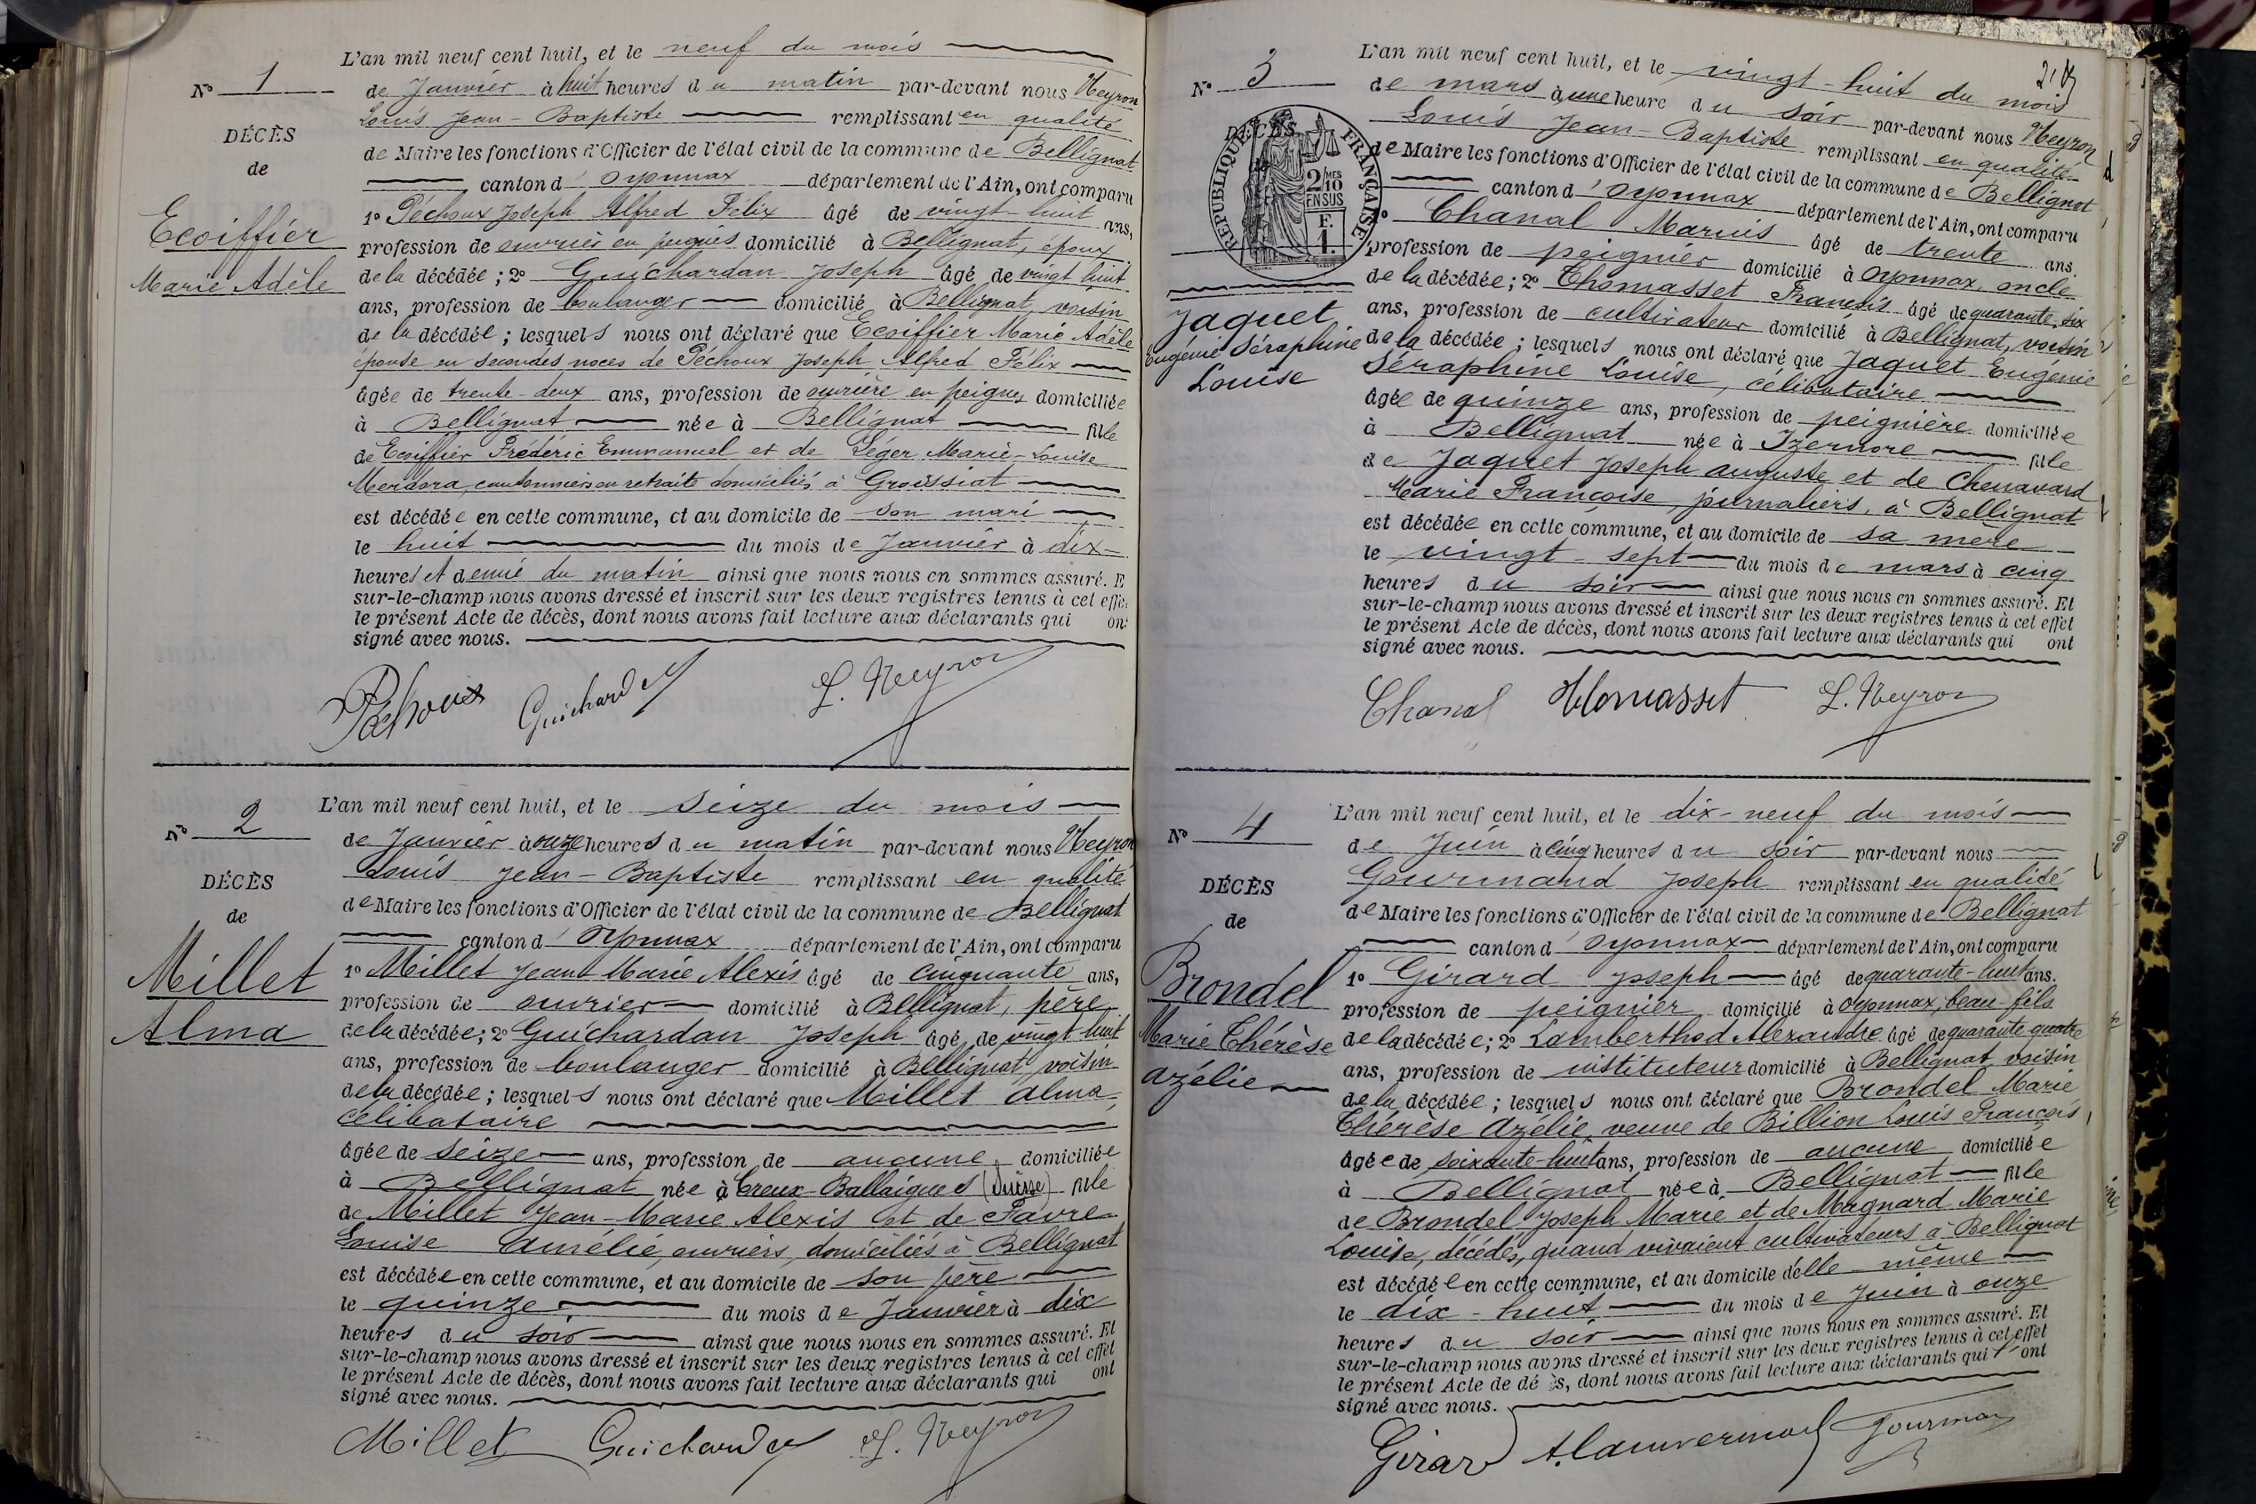 L'an mil neuf cent huit, et le neuf du mois
N° 1
de Janvier à huit heures du matin par-devant nous Neyron
Louis Jean-Baptiste remplissant en qualité
DÉCÈS
de Maire les fonctions d'Officier de l'état civil de la commune de Bellignat
de
canton d'Oyonnax département de l'Ain, ont comparu
1° Péchoux Joseph Alfred Félix âgé de vingt-huit ans,
Ecoiffier
profession de ouvrier en peignes domicilié à Bellignat, époux
Marie Adèle
de la décédée; 2° Guichardan Joseph âgé de vingt huit
ans, profession de boulanger domicilié à Bellignat, voisin
de la décédée; lesquels nous ont déclaré que Ecoiffier Marie Adèle
épouse en secondes noces de Péchoux Joseph Alfred Félix
âgée de trente-deux ans, profession de ouvrière en peignes domiciliée
à Bellignat née à Bellignat fille
de Ecoiffier Frédéric Emmanuel et de Léger Marie-Louise
cantonniers en retraite domiciliés à Groissiat
est décédée en cette commune, et au domicile de son mari
le huit du mois de Janvier à dix
heures et demie du matin ainsi que nous nous en sommes assuré. E
sur-le-champ nous avons dressé et inscrit sur les deux registres tenus à cet effe
le présent Acte de décès, dont nous avons fait lecture aux déclarants qui ont
signé avec nous.
Péchoux Guichardan L. Neyron
L'an mil neuf cent huit, et le seize du mois
N° 2
de Janvier à onze heures du matin par-devant nous Neyron
Louis Jean-Baptiste remplissant en qualité
DÉCÈS
de Maire les fonctions d'Officier de l'état civil de la commune de Bellignat
de
canton d'Oyonnax département de l'Ain, ont comparu
Millet
1° Millet Jean Marie Alexis âgé de cinquante ans,
profession de ouvrier domicilié à Bellignat, père
Alma
de la décédée; 2° Guichardan Joseph âgé de vingt-huit
ans, profession de boulanger domicilié à Bellignat, voisin
de la décédée; lesquels nous ont déclaré que Millet Alma,
célibataire
âgée de seize ans, profession de aucune, domiciliée
à Bellignat née à Creux-Ballaigues (Suisse) fille
de Millet Jean-Marie Alexis et de Favre
Louise Amélie, ouvriers, domiciliés à Bellignat
est décédée en cette commune, et au domicile de son père
le quinze du mois de Janvier à dix
heures du soir ainsi que nous nous en sommes assuré. Et
sur-le-champ nous avons dressé et inscrit sur les deux registres tenus à cet effet
le présent Acte de décès, dont nous avons fait lecture aux déclarants qui ont
signé avec nous.
Millet Guichardan L. Neyron
L'an mil neuf cent huit, et le vingt-huit du mois
N° 3
de mars à une heure du soir par-devant nous Neyron
Louis Jean-Baptiste remplissant en qualité
DÉCÈS
RÉPUBLIQUE FRANÇAISE
2/10 MES EN SUS
F. 1.
de Maire les fonctions d'Officier de l'état civil de la commune de Bellignat
canton d'Oyonnax département de l'Ain, ont comparu
1° Chanal Marius âgé de trente ans.
profession de peignier domicilié à Oyonnax, oncle
de la décédée; 2° Thomasset François âgé de quarante-six
Jaquet
ans, profession de cultivateur domicilié à Bellignat, voisin
Eugénie Séraphine
de la décédée; lesquels nous ont déclaré que Jaquet Eugénie
Louise
Séraphine Louise, célibataire
âgée de quinze ans, profession de peignière domiciliée
à Bellignat née à Izernore fille
de Jaquet Joseph Auguste et de Chenavard
Marie Françoise, journaliers, à Bellignat
est décédée en cette commune, et au domicile de sa mère
le vingt-sept du mois de mars à cinq
heures du soir ainsi que nous nous en sommes assuré. Et
sur-le-champ nous avons dressé et inscrit sur les deux registres tenus à cet effet
le présent Acte de décès, dont nous avons fait lecture aux déclarants qui ont
signé avec nous.
Chanal Thomasset L. Neyron
L'an mil neuf cent huit, et le dix-neuf du mois
N° 4
de Juin à cinq heures du soir par-devant nous
Gourmand Joseph remplissant en qualité
DÉCÈS
de Maire les fonctions d'Officier de l'état civil de la commune de Bellignat
de
canton d'Oyonnax département de l'Ain, ont comparu
Brondel
1° Girard Joseph âgé de quarante-huit ans.
profession de peignier domicilié à Oyonnax, beau-fils
Marie Thérèse
de la décédée; 2° Lamberthod Alexandre âgé de quarante-quatre
Azélie
ans, profession de instituteur domicilié à Bellignat voisin
de la décédée; lesquels nous ont déclaré que Brondel Marie
Thérèse Azélie veuve de Billion Louis François
âgée de soixante-huit ans, profession de aucune domiciliée
à Bellignat née à Bellignat fille
de Brondel Joseph Marie et de Magnard Marie
Louise, décédés, quand vivaient cultivateurs à Bellignat
est décédée en cette commune, et au domicile d'elle-même
le dix-huit du mois de Juin à onze
heures du soir ainsi que nous nous en sommes assuré. Et
sur-le-champ nous avons dressé et inscrit sur les deux registres tenus à cet effet
le présent Acte de décès, dont nous avons fait lecture aux déclarants qui ont
signé avec nous.
Girard Gourmand